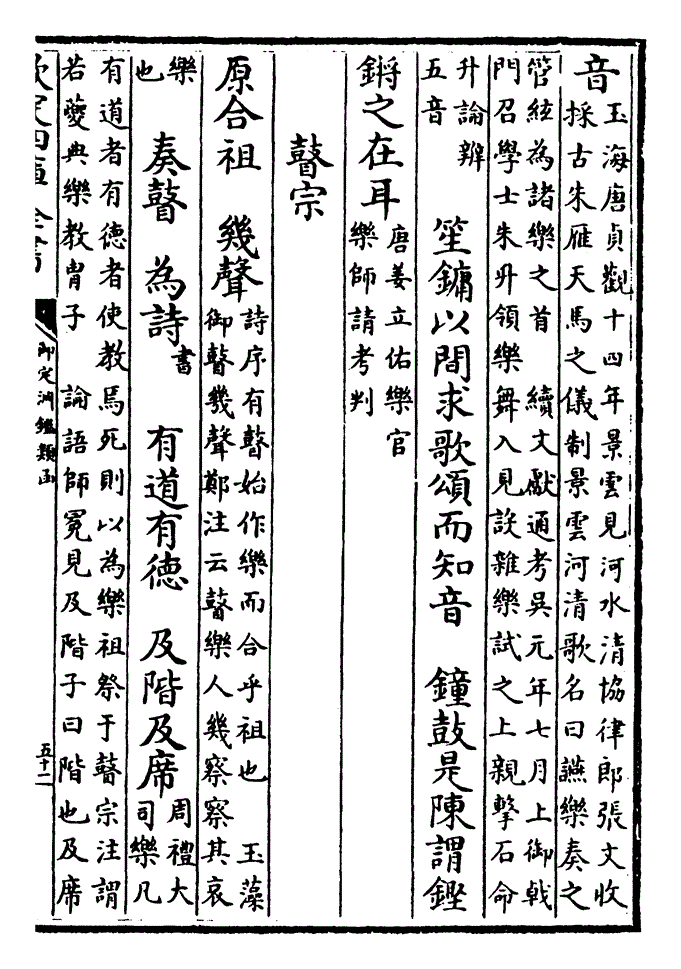 音
玉海唐貞觀十四年景雲見河水清協律郎張文收
採古朱雁天馬之儀制景雲河清歌名曰讌樂奏之
管絃為諸樂之首 續文獻通考吳元年七月上御戟
門召學士朱升領樂舞入見設雜樂試之上親擊石命
升論辨
五音
笙鏞以間求歌頌而知音 鐘鼓是陳謂鏗
鏘之在耳
唐姜立佑樂官
樂師請考判
瞽宗
原合祖 幾聲
詩序有瞽始作樂而合乎祖也 玉藻
御瞽幾聲鄭注云瞽樂人幾察察其哀
樂
也
奏瞽 為詩
書
有道有德 及階及席
周禮大
司樂凡
有道者有德者使教焉死則以為樂祖祭于瞽宗注謂
若夔典樂教胄子 論語師冕見及階子曰階也及席
御定淵鑑類函
五十二